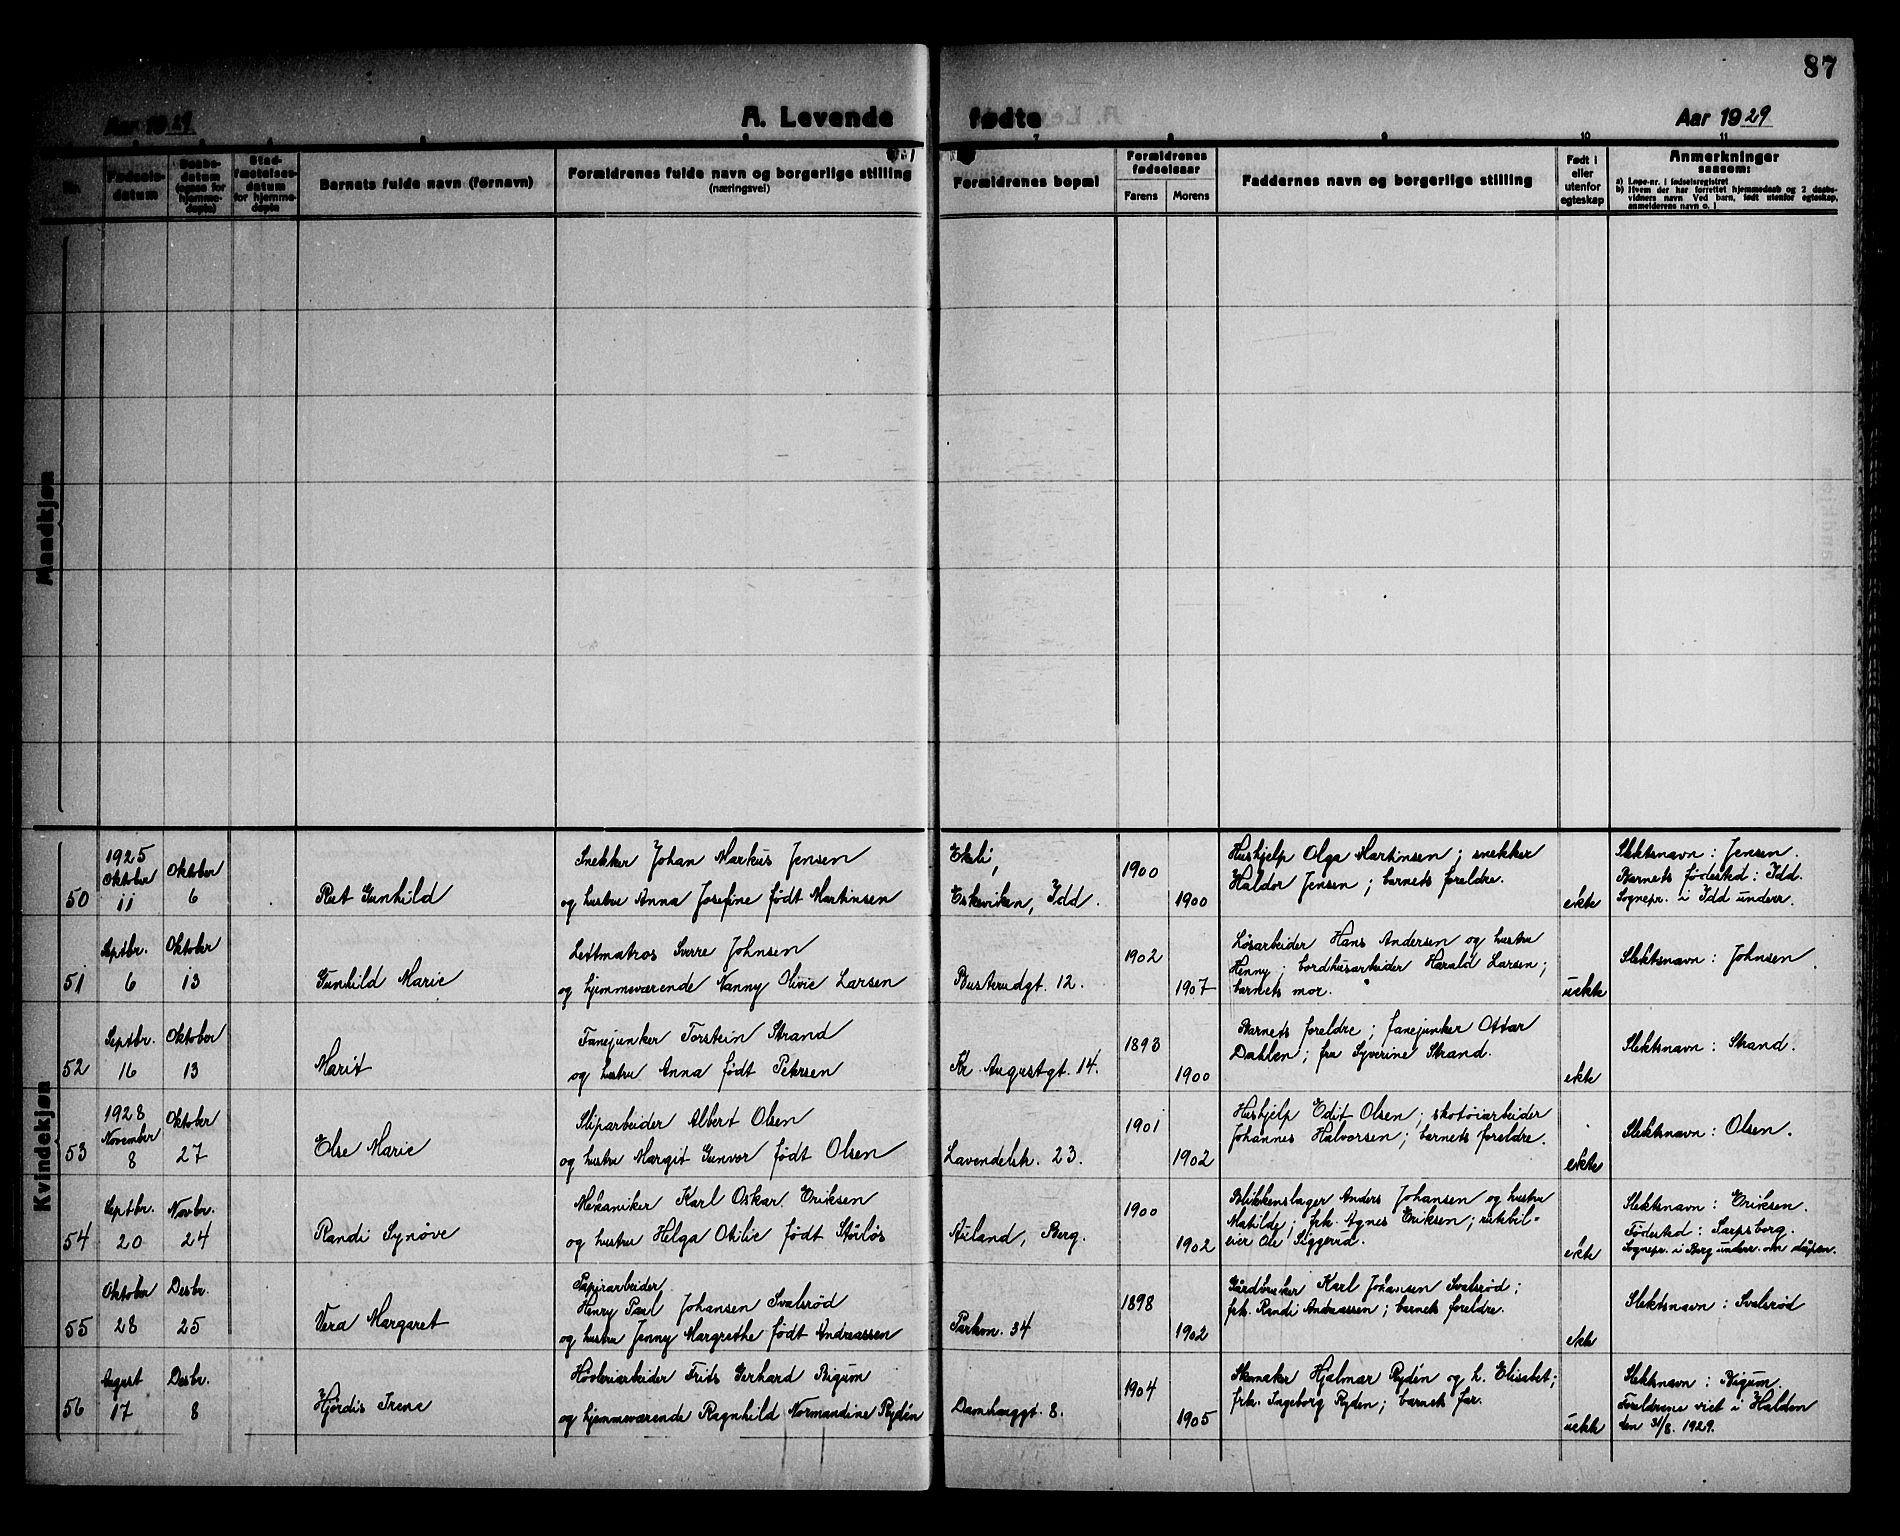 87
Aar 1929
A. Levende fødte
Aar 1929
7
9
10
11
Nr.
Fødsels-
datum
Daabs-
datum
(ogsaa for
hjemme-
døpte)
Stad-
fæstelses-
datum
for hjemme-
døpte
Barnets fulde navn (fornavn)
Forældrenes fulde navn og borgerlige stilling
(næringsvei)
Forældrenes bopæl
Forældrenes
fødselsaar
Farens
Morens
Faddernes navn og borgerlige stilling
Født i
eller
utenfor
egteskap
Anmerkninger
saasom:
a) Løpe-nr. i fødselsregistret
b) Hvem der har forrettet hjemmedaab og 2 daabs-
vidners navn Ved barn, født utenfor egteskap,
anmelderens navn o. l
Mandkjøn
Kvindekjøn
50
1925
Oktober
11
Oktober
6
Gunhild
Snekker Johan Markus Jensen
og hustru Anna Josefine født Martinsen
Ekeli,
Eskeviken, Idd.
1900
1900
Hushjelp Olga Martinsen; snekker
Haldor Jensen; barnets foreldre.
ekte
Slektsnavn: Jensen.
Barnets fødested: Idd.
Sognepr. i Idd underr.
51
Septbr.
6
Oktober
13
Gunhild Marie
Lettmatros Sverre Johnsen
og hjemmeværende Nanny Olivie Larsen
Busterudgt. 12.
1902
1907
Løsarbeider Hans Andersen og hustru
Henny; bordhusarbeider Harald Larsen;
barnets mor.
uekte
Slektsnavn: Johnsen
52
Septbr.
16
Oktober
13
Marit
Fanejunker Torstein Strand
og hustru Anna født Petersen
Kr. Augustgt. 14.
1893
1900
Barnets foreldre; fanejunker Ottar
Dahlen; fru Syverine Strand.
ekte
Slektsnavn: Strand.
53
1928
November
8
Oktober
27
Else Marie
Sliparbeider Albert Olsen
og hustru Margit Gunvor født Olsen
Lavendelstr. 23.
1901
1902
Hushjelp Edit Olsen; skotøiarbeider
Johannes Halvorsen; barnets foreldre.
ekte
Slektsnavn: Olsen.
54
Septbr.
20
Novbr.
24
Randi Synøve
Mekaniker Karl Oskar Eriksen
og hustru Helga Otilie født
Berg.
1900
1902
Blikkenslager Anders Johansen og hustru
Matilde; frk. Agnes Eriksen; rutebil-
eier Ole Siggerud.
ekte
Slektsnavn: Eriksen.
Fødested: Sarpsborg.
Sognepr. i Berg underr. om dåpen.
55
Oktober
28
Desbr.
25
Vera Margaret
Papirarbeider
Henry Paul Johansen Svalsrød
og hustru Jenny Margrethe født Andreassen
Parkvn. 34
1898
1902
Gårdbruker Karl Johansen Svalsrød;
frk. Randi Andreassen; barnets foreldre.
ekte
Slektsnavn: Svalsrød
56
August
17
Desbr.
8
Hjørdis Irene
Høvleriarbeider Frits Gerhard Bigum
og hjemmeværende Ragnhild Normandine Rydén
Damhauggt. 8.
1904
1905
Skomaker Hjalmar Rydén og h. Elisabet;
frk. Ingeborg Rydén; barnets far.
uekte
Slektsnavn: Bigum.
Foreldrene viet i Halden
den 31/8. 1929.